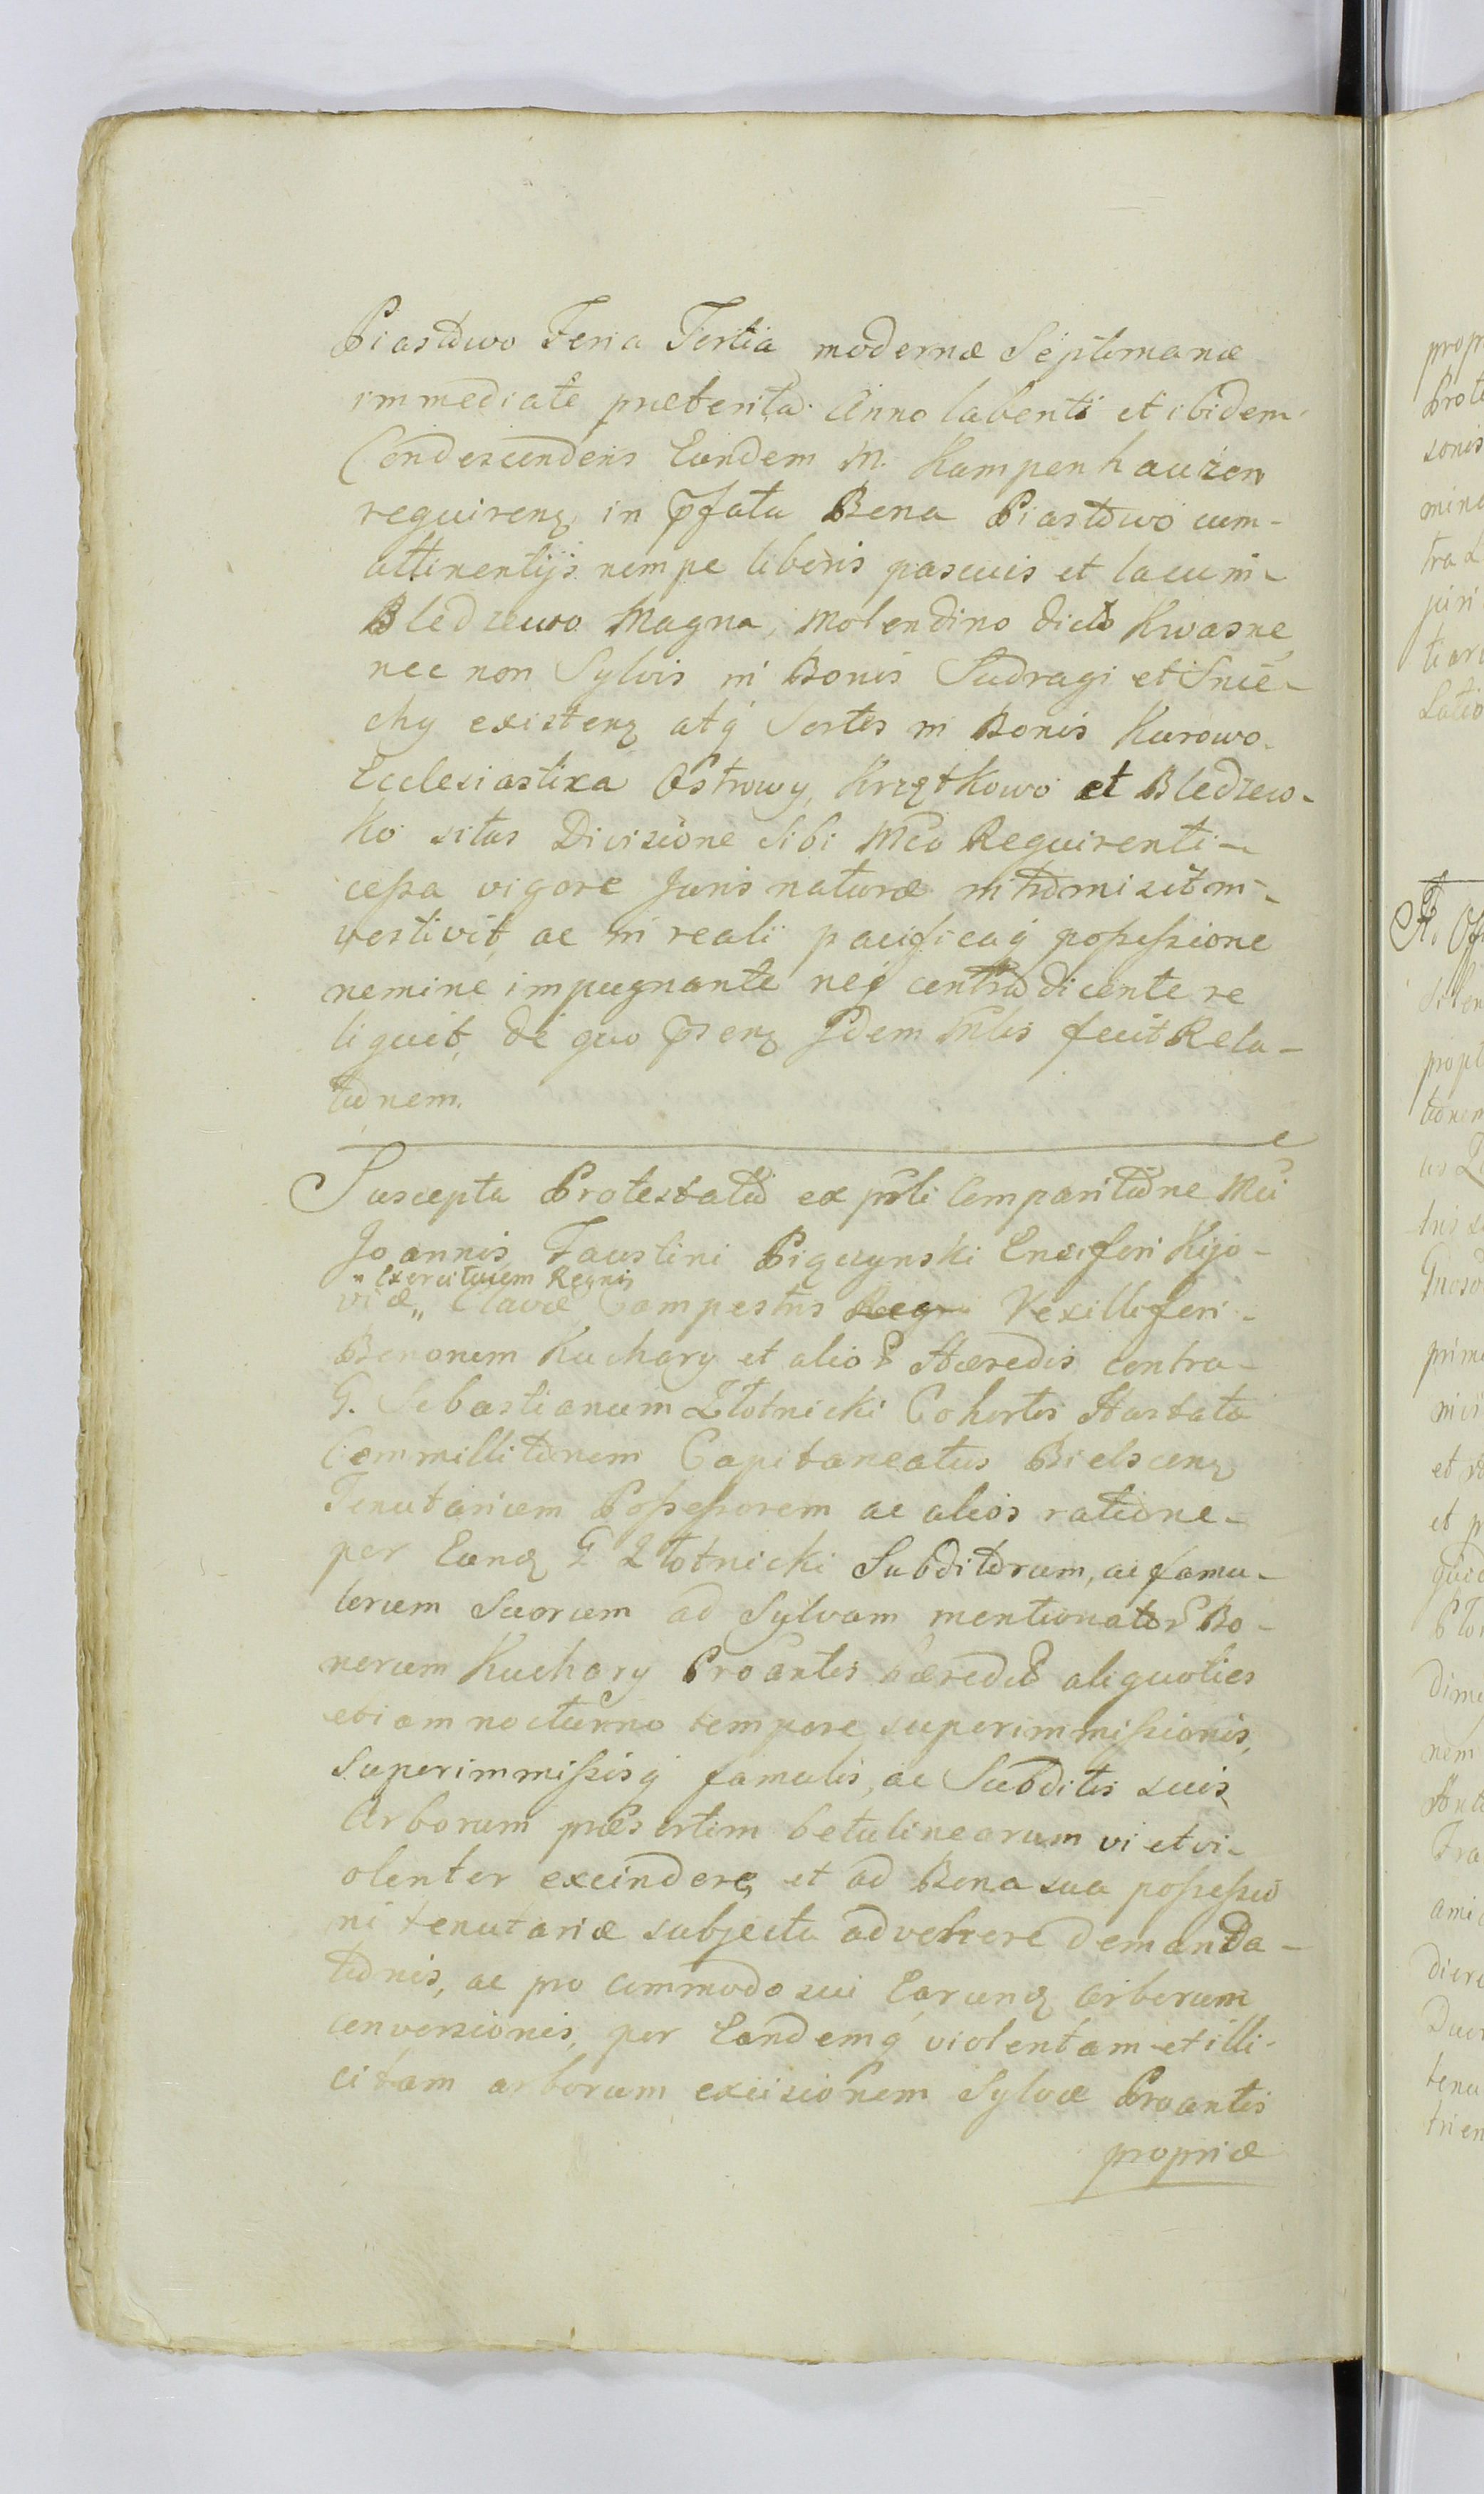 Piastowo Feria Tertia modernæ Septimanæ
immediatè præterita Anno labenti et ibidem
Condescendens Eundem M. Kampenhauzen
requirenꝗ in p̃fata Bona Piastowo cum-
attinentijs nempe liberis pascuis et lacu in-
Bledzewo Magna, Molendino dicto Kwasne
nec non Sylvis in Bonis Sudragi et Snie-
chy existenꝗ atq́ Sortes in Bonis Kurowo-
Ecclesiastica Ostrowy, Krzętkowo et Bledzew-
ko sitas Divisione Sibi Mco Requirenti-
cessa vigore Juris naturæ intromisit in-
vestivit, ac in reali pacificaq́ possessione
nemine impugnante neq́ contradicente re
liquit, de quo p̃senꝗ Idem Mlis fecit Rela-
tionem.
Suscepta Protestatio ex pñli Comparitione Mci
Joannis Faustini Pigczynski Ensiferi Kijo-
„Exercituum Regnis
viæ „ Clavæ Campestris Regni Vexilliferi-
Bonorum Kuchary et alior Hæredis contra-
G. Sebastianum Złotnicki Cohortis Hastatæ
Commillitonem Capitaneatus Bielscenꝗ
Tenutarium Possessorem ac alios ratione-
per Eunꝗ G Złotnicki Subditorum, ac famu-
lorum Suorum ad Sylvam mentionator Bo-
norum Kuchary Proantis hæredit aliquoties
etiam nocturno tempore superimmissionis,
Superimmissisq́ famulis, ac Subditis suis
Arborum præsertim betulinearum vi et vi-
olenter excindere, et ad Bona sua possessio
ni tenutariæ subjecta advehere demanda-
tionis, ac pro commodo sui Earunꝗ arborum
conversionis, per Eandemq́ violentam et illi-
citam arborum excisionem Sylvæ Proantis
propriæ